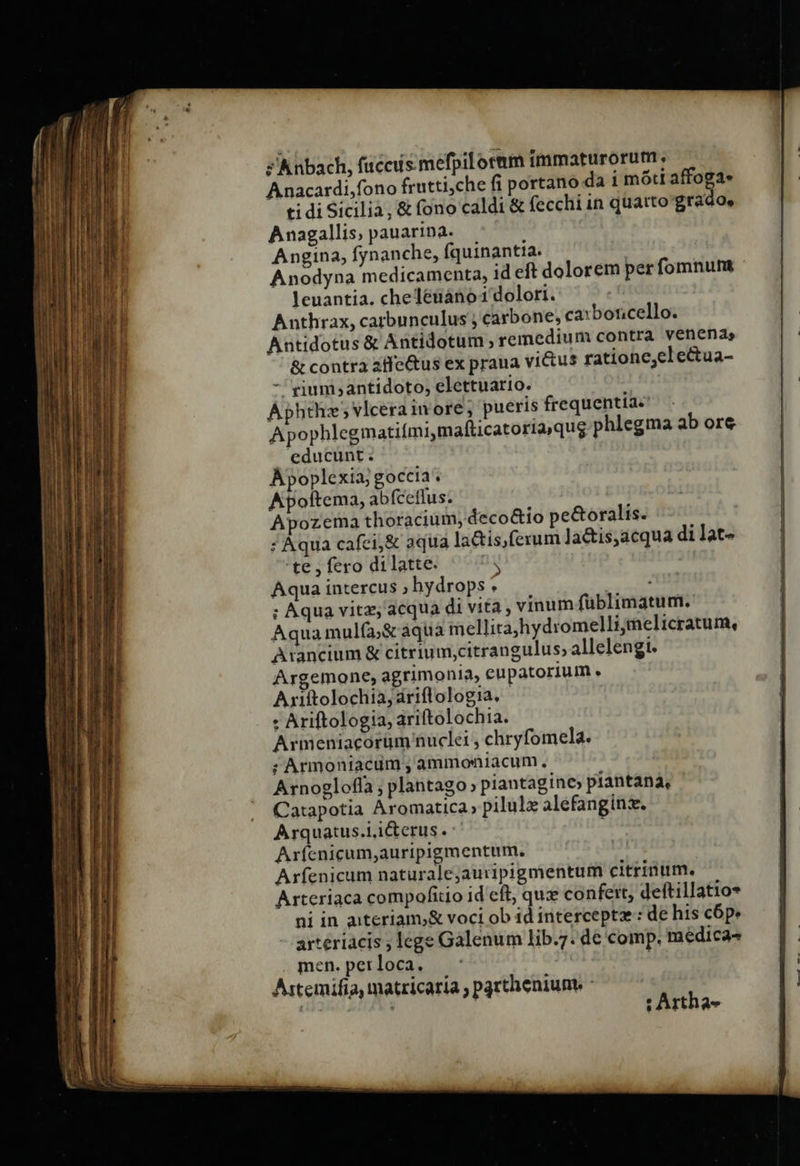 : Anbach, ſuccus meſpilorum immaturorum.
Anacardi,ſono frutti,che ſi portano da i mõti affoga-
ti di Sicilia, & ſono caldi & ſecchi in quarto grado.
Anagallis, pauarina.
Angina, ſynanche, ſquinantia.
Anodyna medicamenta, id eſt dolorem per ſomnum
leuantia. che leuano i dolori.
Anthrax, carbunculus, carbone, carboncello.
Antidotus & Antidotum, remedium contra venena,
& contra affectus ex praua victus ratione,electua-
rium,antidoto, elettuario.
Aphthæ, vlcera in ore, pueris frequentia.
Apophlegmatiſmi,maſticatoria,quę phlegma ab ore
educunt.
Apoplexia, goccia.
Apoſtema, abſceſſus.
Apozema thoracium, decoctio pectoralis.
: Aqua caſei,& aqua lactis,ſerum lactis,acqua di lat-
te, ſero di latte.
Aqua intercus, hydrops.
; Aqua vitæ, acqua di vita, vinum ſublimatum.
Aqua mulſa,& aqua mellita,hydromelli,melicratum,
Arancium & citrium,citrangulus, allelengi.
Argemone, agrimonia, eupatorium.
Ariſtolochia, ariſtologia.
: Ariſtologia, ariſtolochia.
Armeniacorum nuclei, chryſomela.
; Armoniacum, ammoniacum.
Arnogloſſa, plantago, piantagine, piantana,
Catapotia Aromatica, pilulæ alefanginæ.
Arquatus.i.icterus.
Arſenicum,auripigmentum.
Arſenicum naturale,auripigmentum citrinum.
Arteriaca compoſitio id eſt, quæ confert, deſtillatio-
ni in arteriam,& voci ob id interceptæ : de his cõp.
arteriacis, lege Galenum lib.7. de comp. medica-
men. per loca.
Artemiſia, matricaria, parthenium.
: Artha-